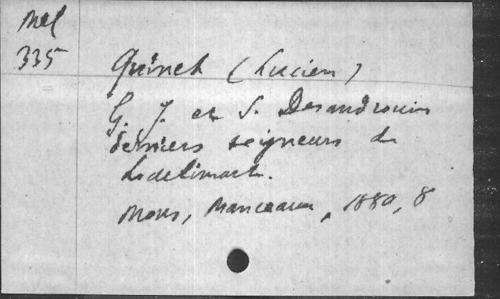 Mel
335
Quinet (Lucien)
G. J. et S. Desandrouin
derniers seigneurs de
Lodelinsart.
Mons, Manceaux, 1880, 8